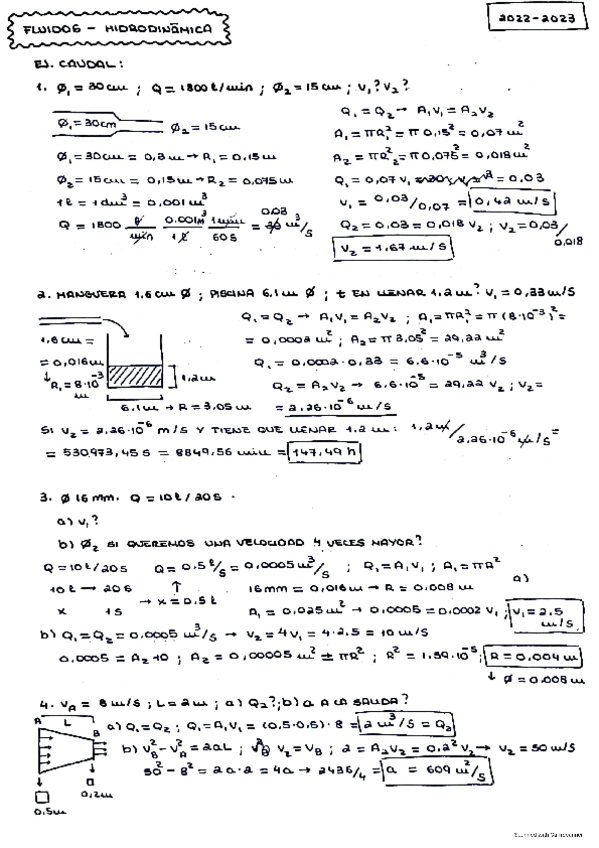 FLUIDOS - HIDRODINÁMICA
2022-2023
EJ. CAUDAL:
1. Ø₁ = 30cm ; Q = 1800 ℓ/min ; Ø₂ = 15cm ; v₁? v₂?
Ø₁ = 30cm
Ø₂ = 15cm
Ø₁ = 30cm = 0,3m → R₁ = 0,15m
Ø₂ = 15cm = 0,15m → R₂ = 0,075m
1ℓ = 1dm³ = 0,001m³
Q = 1800 ℓ/min · 0.001m³/1ℓ · 1min/60s = 0.03 m³/s
Q₁ = Q₂ → A₁V₁ = A₂V₂
A₁ = πR₁² = π 0,15² = 0,07 m²
A₂ = πR₂² = π 0,075² = 0,018m²
Q₁ = 0,07 v₁ = 0,03
v₁ = 0,03/0,07 = 0,42 m/s
Q₂ = 0,03 = 0,018 v₂ ; v₂ = 0,03/0,018
v₂ = 1,67 m/s
2. MANGUERA 1.6cm Ø ; PISCINA 6.1m Ø ; t EN LLENAR 1.2m? v₁ = 0,33m/s
1,6cm =
= 0,016m
↓
R₁ = 8·10⁻³ m
1,2m
6.1m → R = 3,05m
Q₁ = Q₂ → A₁V₁ = A₂V₂ ; A₁ = πR₁² = π(8·10⁻³)² =
= 0,0002 m² ; A₂ = π 3,05² = 29,22 m²
Q₁ = 0,0002·0,33 = 6.6·10⁻⁵ m³/s
Q₂ = A₂V₂ → 6.6·10⁻⁵ = 29,22 v₂ ; v₂ =
= 2,26·10⁻⁶ m/s
SI v₂ = 2,26·10⁻⁶ m/s Y TIENE QUE LLENAR 1.2m : 1,2m/2,26·10⁻⁶ m/s =
= 530973,45 s = 8849,56 min = 147,49 h
3. Ø 16mm. Q = 10ℓ/20s.
a) v₁?
b) Ø₂ SI QUEREMOS UNA VELOCIDAD 4 VECES MAYOR?
Q = 10ℓ/20s Q = 0.5ℓ/s = 0,0005 m³/s ; Q₁ = A₁V₁ ; A₁ = πR²
10ℓ → 20s ↑ 16mm = 0,016m → R = 0.008m a)
x 1s → x = 0.5ℓ A₁ = 0,025m² → 0,0005 = 0,0002 v₁ ; v₁ = 2.5 m/s
b) Q₁ = Q₂ = 0,0005 m³/s → v₂ = 4v₁ = 4·2.5 = 10m/s
0,0005 = A₂·10 ; A₂ = 0,00005 m² = πR² ; R² = 1.59·10⁻⁵ ; R = 0,004m
↓ Ø = 0.008m
4. vA = 8m/s ; L = 2m ; a) Q₂? ; b) a A LA SALIDA?
A L B
0.5m
0,2m
a) Q₁ = Q₂ ; Q₁ = A₁V₁ = (0,5·0,5)·8 = 2m³/s = Q₂
b) vB² - vA² = 2aL ; v₂ = vB ; 2 = A₂V₂ = 0.2² v₂ → v₂ = 50m/s
50² - 8² = 2a·2 = 4a → 2436/4 = a = 609 m²/s
Scanned with CamScanner